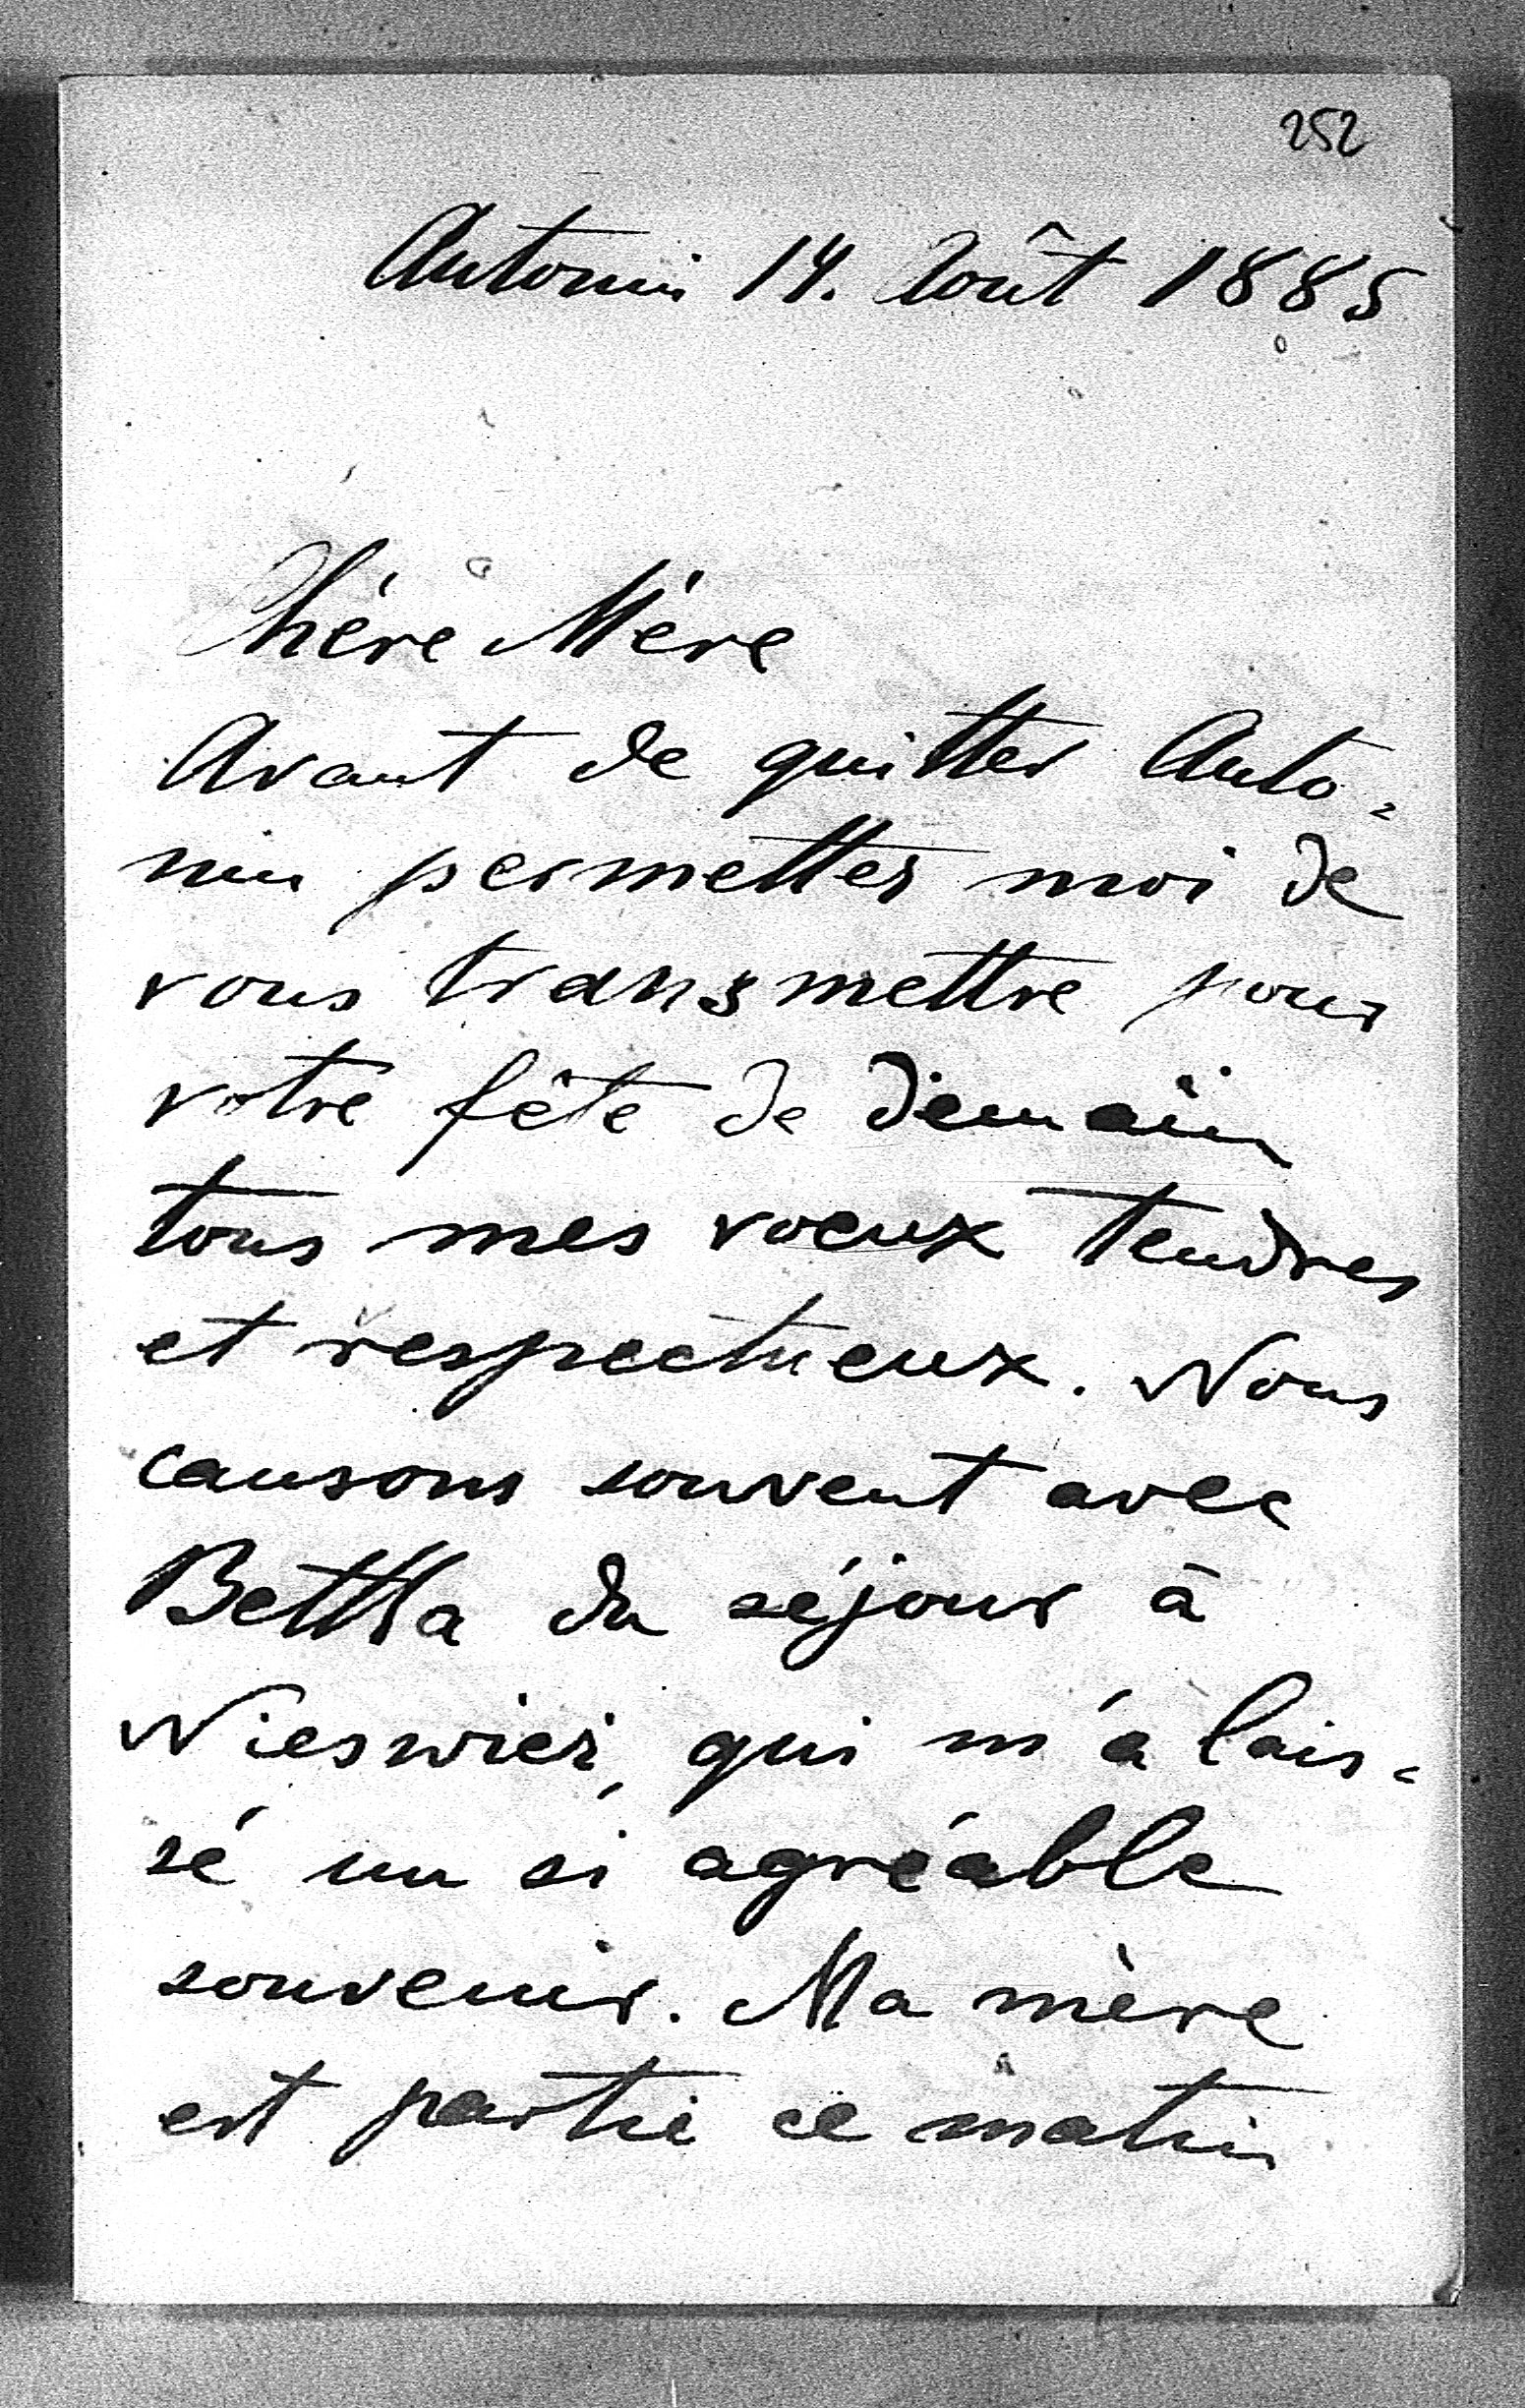 252
Antonin 14. Août 1885
Chère Mère
Avant de quitter Anto=
nin permettez moi de
vous transmettre pour
votre fête de demain
tous mes voeux tendres
et respectueux. Nous
causons souvent avec
Bettka du séjour à
Nieswiez, qui m'a lais=
sé un si agréable
souvenir. Ma mère
est partie ce matin